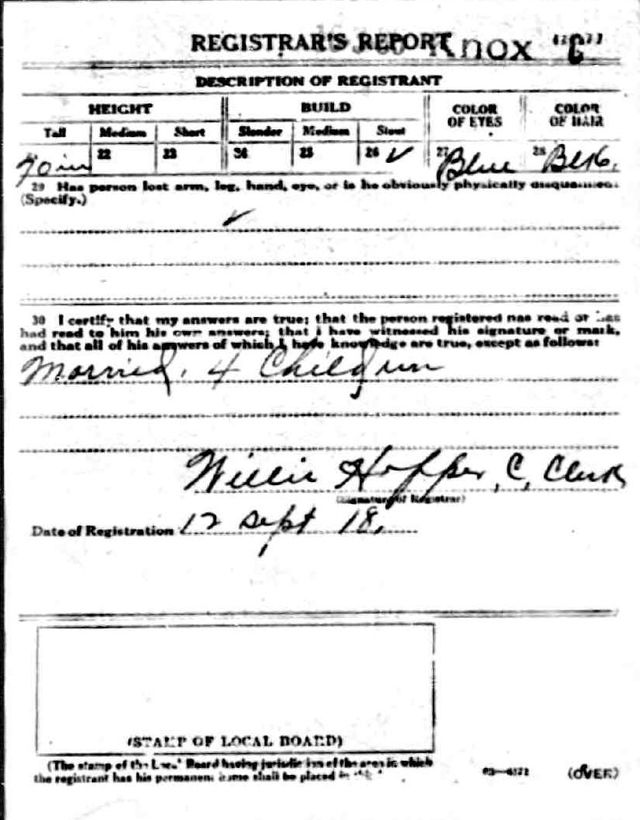 REGISTRAR'S REPORT Knox "C"
DESCRIPTION OF REGISTRANT
HEIGHT BUILD COLOR OF EYES COLOR OF HAIR
Tall Medium Short Slender Medium Stout
70 in 22 23 24 25 26 ✓ 27 Blue 28 Blk.
29 Has person lost arm, leg, hand, eye, or is he obviously physically disqualified?
(Specify.) ✓
30 I certify that my answers are true; that the person registered has read or has
had read to him his own answers; that I have witnessed his signature or mark,
and that all of his answers of which I have knowledge are true, except as follows:
Married, 4 Children
Willis Hopper, C, Clerk
(Signature of Registrar)
Date of Registration 12 Sept 18,
(STAMP OF LOCAL BOARD)
(The stamp of the Local Board having jurisdiction of the area in which
the registrant has his permanent home shall be placed in
03—6171 (OVER)